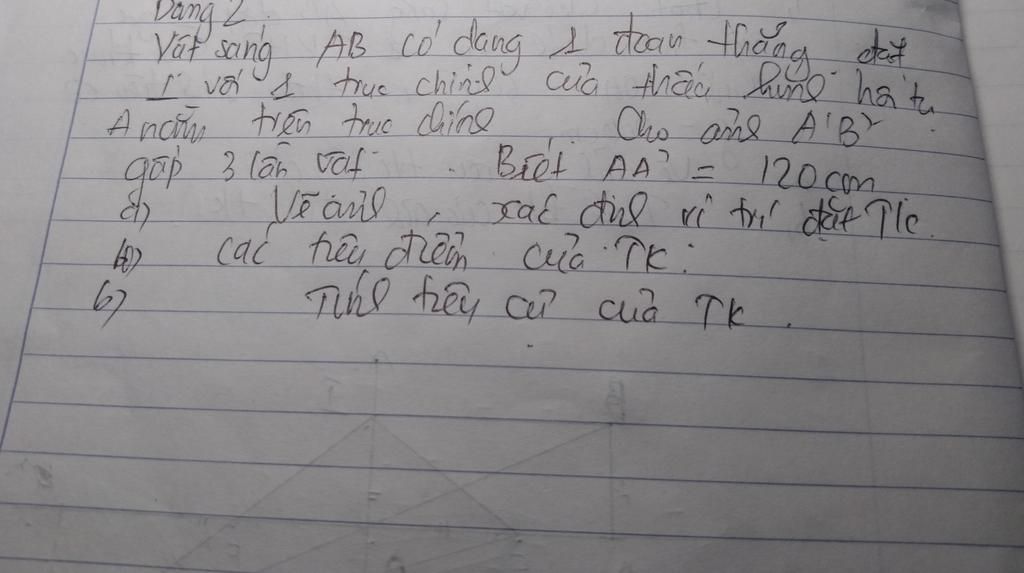 Dạng 2.
Vật sáng AB có dạng 1 đoạn thẳng đặt
⊥ với 1 trục chính của thấu kính hội tụ
A nằm trên trục chính Cho ảnh A'B'
gấp 3 lần vật. Biết AA' = 120 cm
a) Vẽ ảnh, xác định vị trí đặt TK.
các tiêu điểm của TK.
b) Tính tiêu cự của TK.